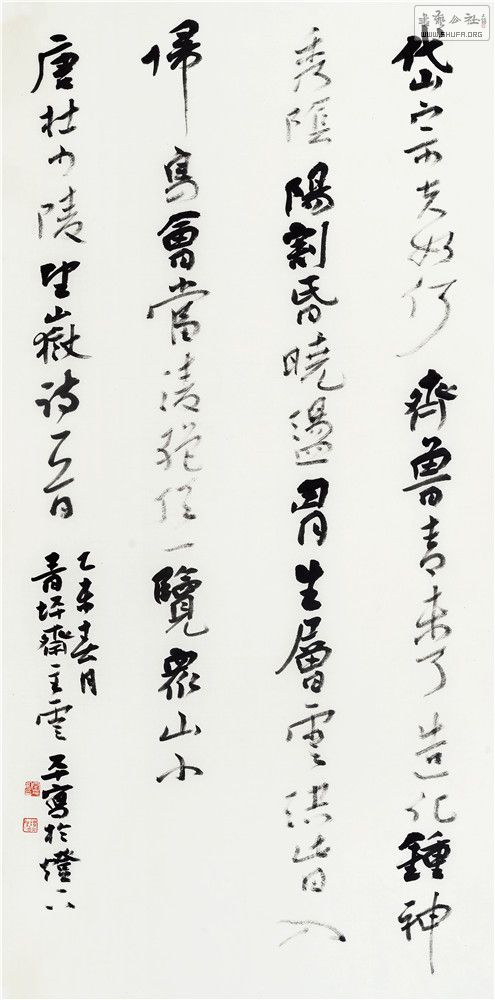 岱宗夫如何齊魯青未了造化鍾神
秀陰陽割昏曉盪胷生層雲決眥入
歸鳥會當凌絕頂一覽眾山小
唐杜少陵望嶽詩一首
乙未春月
青坪齋主雲平寫於燈下
書藝公社
WWW.SHUFA.ORG